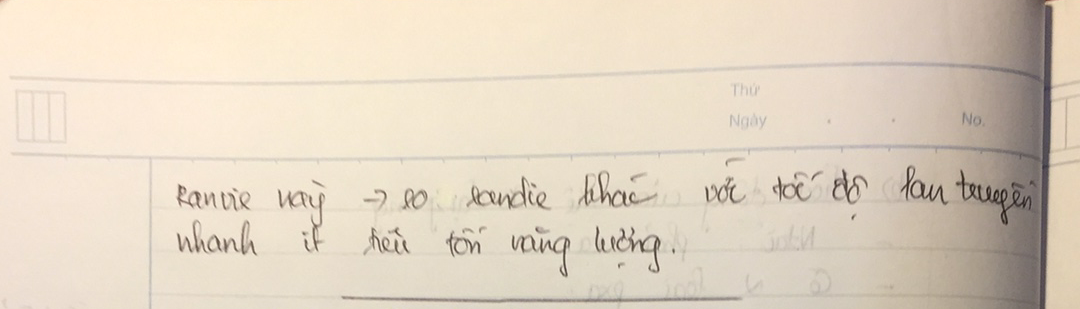 Thứ
Ngày . . No.
Ranvie này → eo ranvie khác với tốc độ lan truyền
nhanh ít tiêu tốn năng lượng.